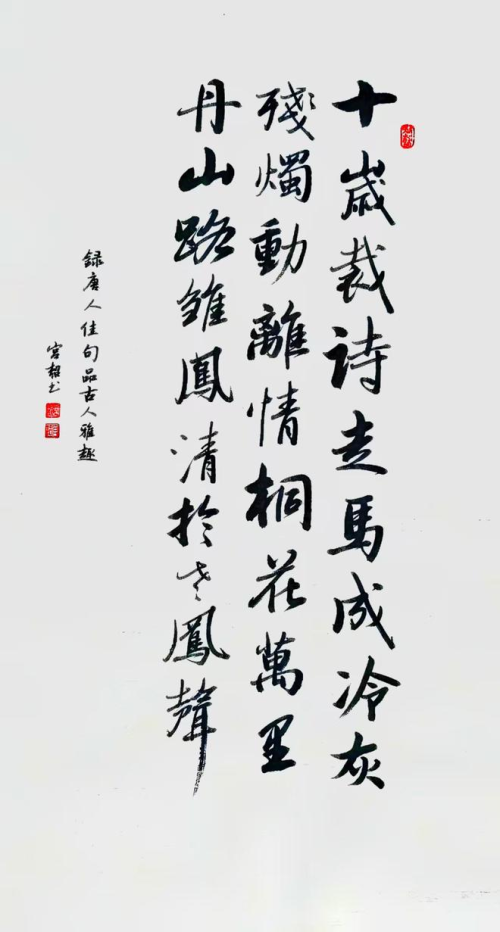 十歲裁詩走馬成冷灰
殘燭動離情桐花萬里
丹山路雏鳳清於老鳳聲
録唐人佳句品古人雅趣
宮超书